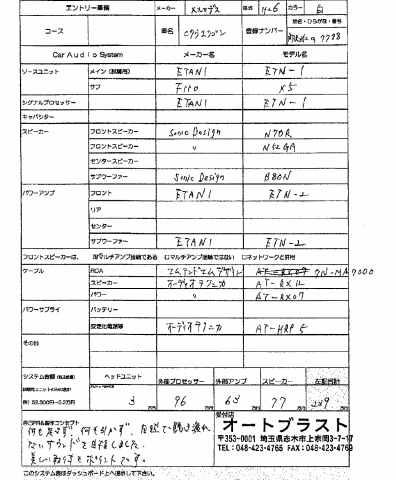 エントリー車輌 メーカー メルセデス 年式 H26 カラー 白
コース 車名 Cクラスワゴン 登録ナンバー 地名・ひらがな・番号 7788
Car Audio System メーカー名 モデル名
ソースユニット メイン(試聴用) ETANI ETN-1
サブ FiiO X5
シグナルプロセッサー ETANI ETN-1
キャパシター
スピーカー フロントスピーカー Sonic Design N70R
フロントスピーカー 〃 N52GA
センタースピーカー
サブウーファー Sonic Design B80N
パワーアンプ フロント ETANI ETN-2
リア
センター
サブウーファー ETANI ETN-2
フロントスピーカーは、 マルチアンプ接続である ロマルチアンプ接続ではない ロネットワークと併用
ケーブル RCA エムアンドエムデザイン 7N-MA7000
スピーカー オーディオテクニカ AT-RX12
パワー 〃 AT-RX07
パワーサプライ バッテリー
安定化電源等 オーディオテクニカ AT-HRP5
その他
システム金額(税込定価) ヘッドユニット 外部プロセッサー 外部アンプ スピーカー 左記合計
例)52,500円→5.2万円 3 万円 96 万円 63 万円 77 万円 239 万円
自己PR&製作コンセプト 何も足さず 何も引かず 自然で聴き疲れ
ないサウンドを目指しました。
美しい取付もポイントです。
受付店
オートブラスト
〒353-0001 埼玉県志木市上宗岡3-7-17
TEL:048-423-4765 FAX:048-423-4769
このシステム表はダッシュボード上へ提示して下さい。